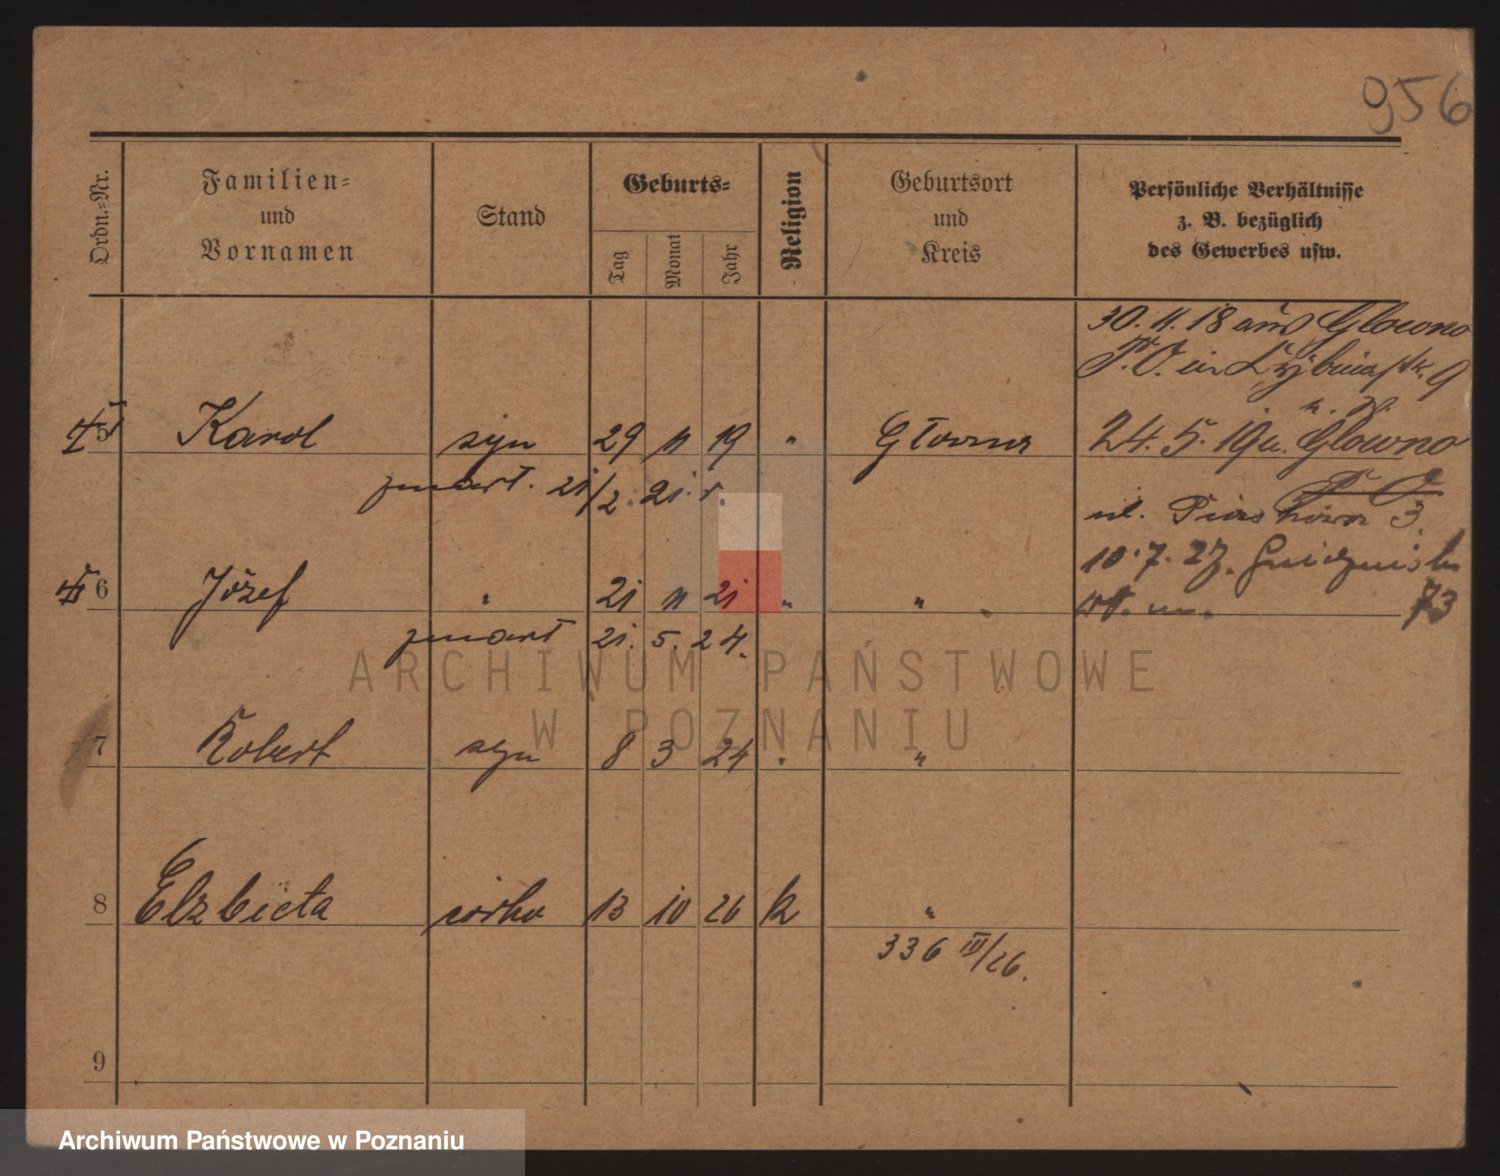 956
Ordn.-Nr.
Familien-
und
Vornamen
Stand
Geburts-
Tag
Monat
Jahr
Religion
Geburtsort
und
Kreis
Persönliche Verhältnisse
z. B. bezüglich
des Gewerbes usw.
30. 11. 18 aus Glowno
P. O. in
5 Karol syn 29 11 19 " Główna 24. 5. 19 n. Glowno
zmart. 21/2. 21. r. P O
ul. Piaskowa 3
10. 7. 27.
6 Józef " 21 11 21 " " 73
zmart 21. 5. 24.
7 Robert syn 8 3 24 " "
8 Elzbieta córka 13 10 26 k "
336 III/26.
9
ARCHIWUM PAŃSTWOWE
W POZNANIU
Archiwum Państwowe w Poznaniu